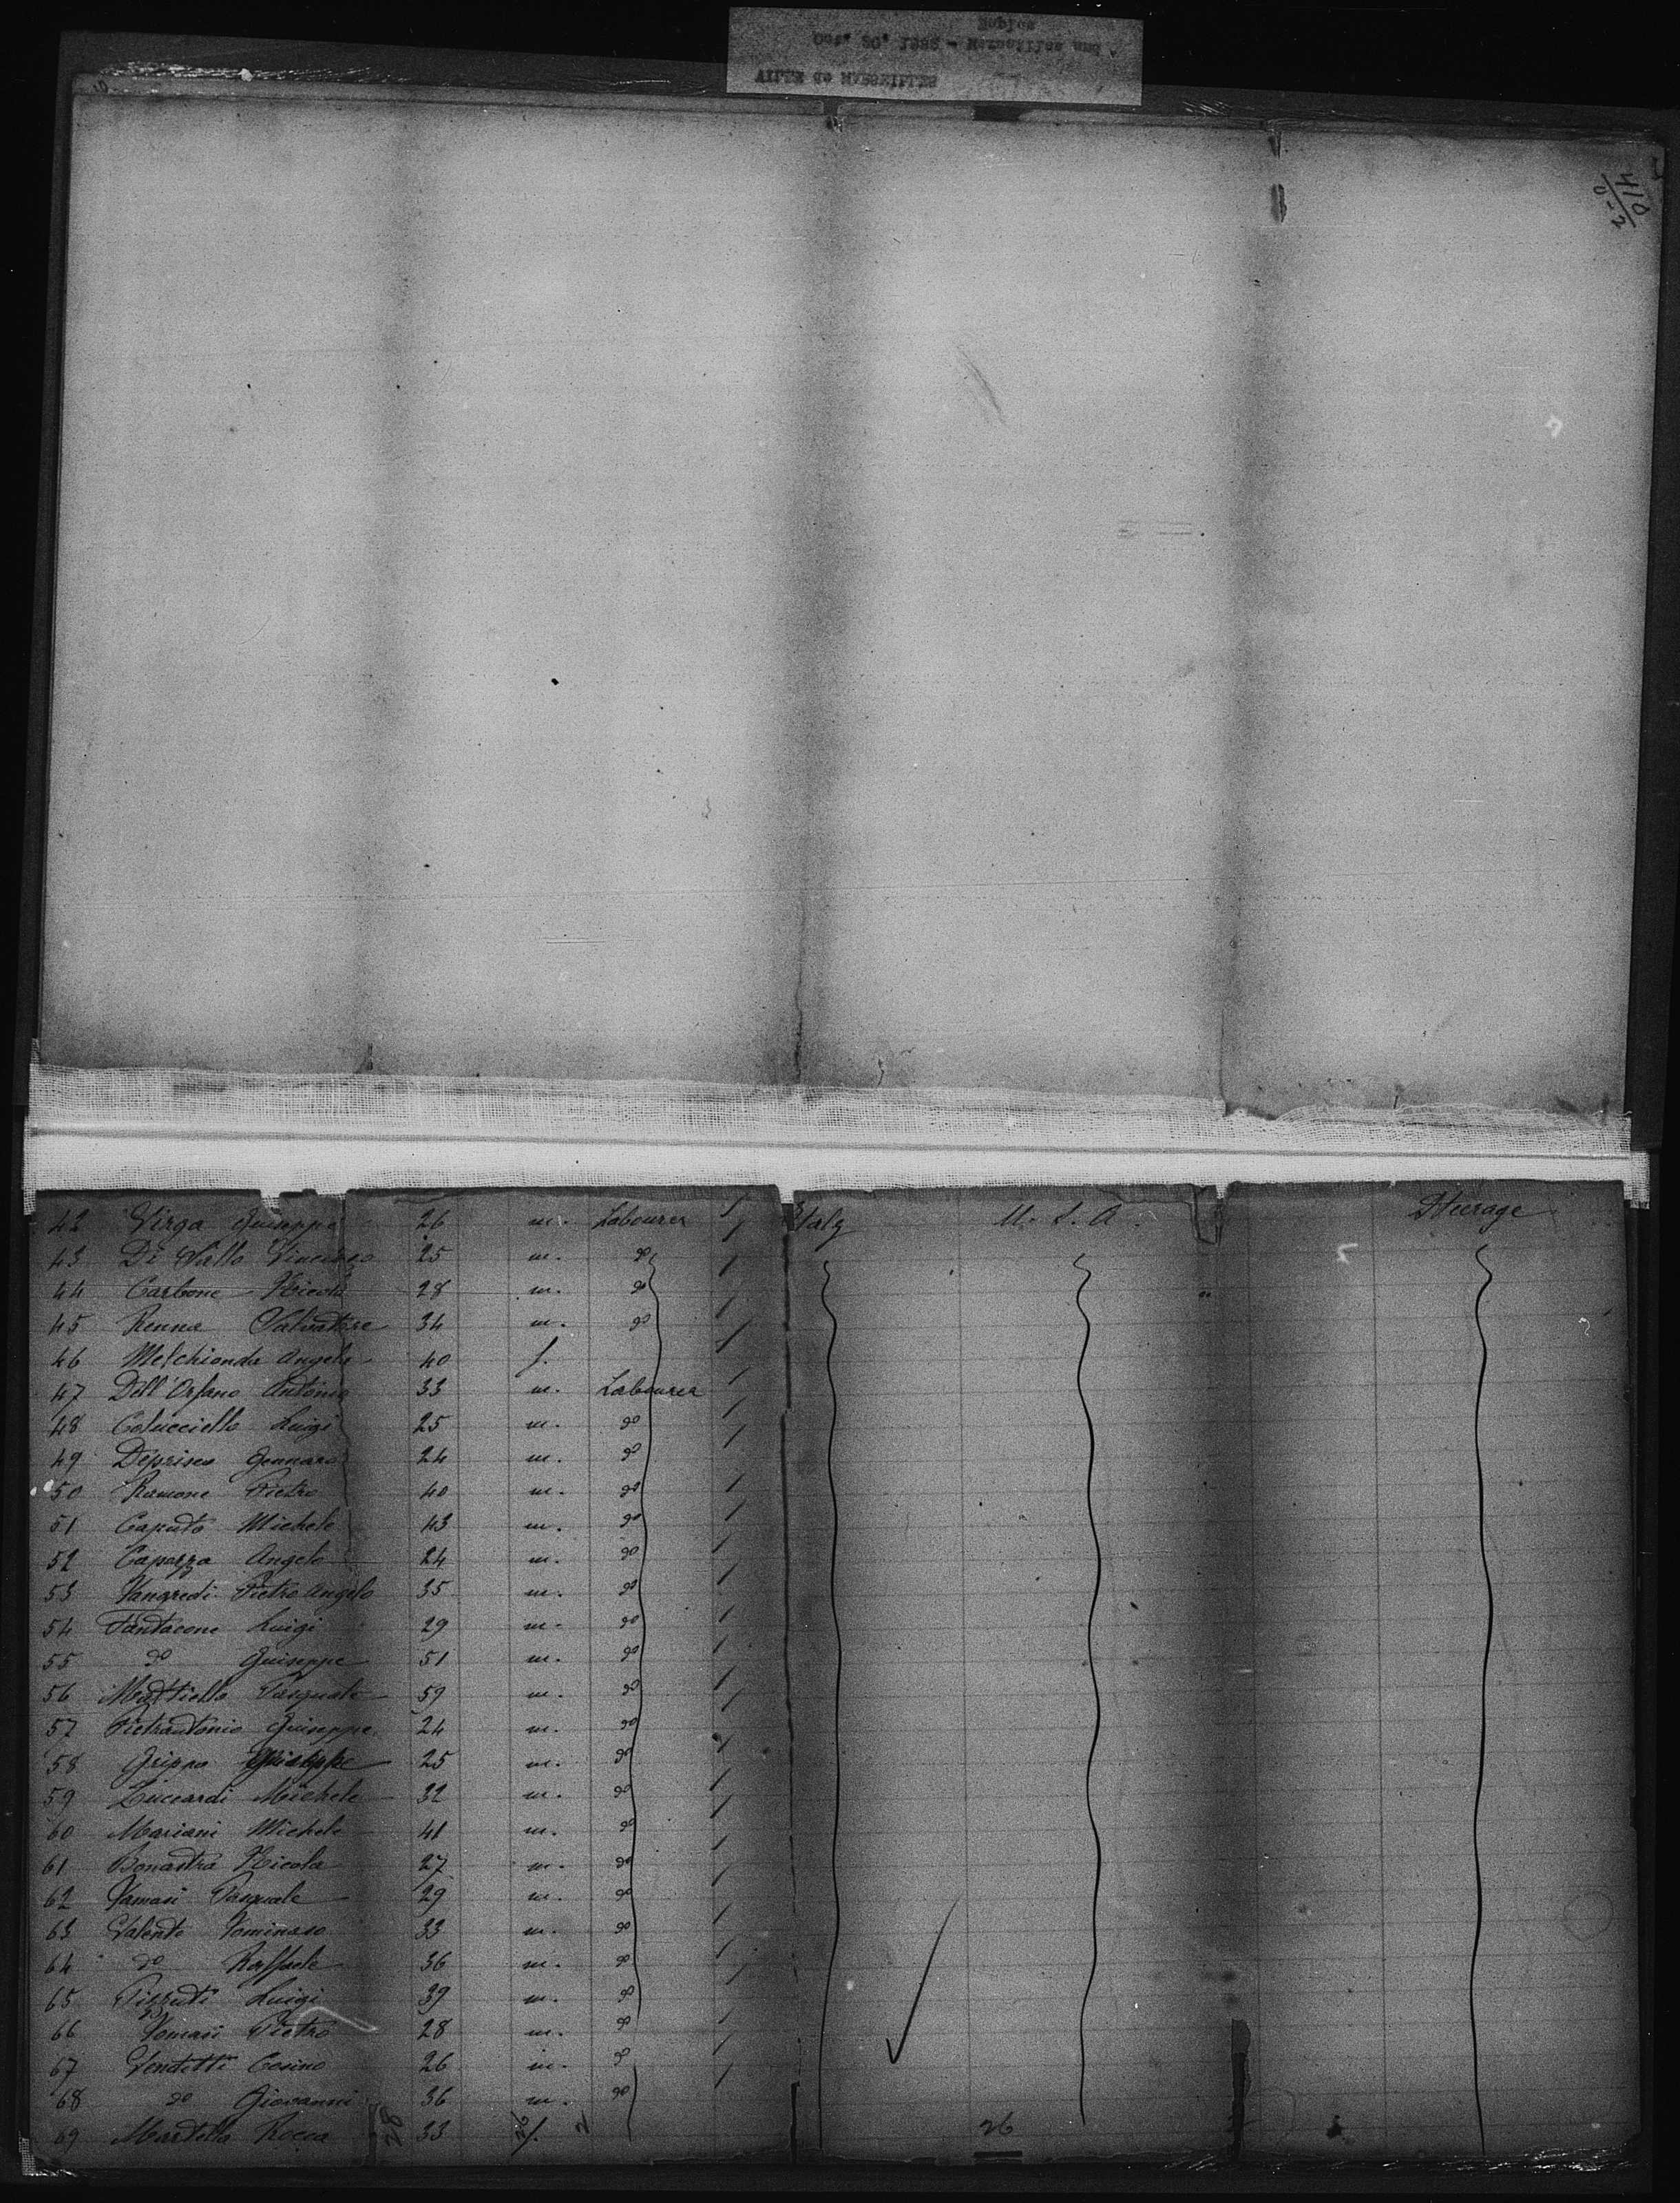 VILLE de MARSEILLES
Oct. 30, 1882 - Marseilles and
Naples
42 Virga Guiseppe 26 m. Labourer Italy U. S. A. Steerage
43 Di Stello Vincenzo 25 m. do
44 Carbone Nicola 28 m. do
45 Renna Salvatore 34 m. do
46 Melchionda Angela 40 f.
47 Dell'Orfano Antonio 33 m. Labourer
48 Colucciello Luigi 25 m. do
49 Deprisco Gennaro 24 m. do
50 Ramone Pietro 40 m. do
51 Caputo Michele 43 m. do
52 Capozza Angelo 24 m. do
53 Tangredi Pietro Angelo 35 m. do
54 Tantacone Luigi 29 m. do
55 do Guiseppe 51 m. do
56 Mattiello Pasquale 59 m. do
57 Pietrantonio Guiseppe 24 m. do
58 Grippo 25 m. do
59 Luccardi Michele 32 m. do
60 Mariani Michele 41 m. do
61 Bonastra Nicola 27 m. do
62 Tamasi Pasquale 29 m. do
63 Valente Tominaso 33 m. do
64 do Raffaele 36 m. do
65 Pizzuti Luigi 39 m. do
66 Tomasi Pietro 28 m. do
67 Venditti Cosimo 26 m. do
68 do Giovanni 36 m. do
69 Martella Rocca 33 f. 26